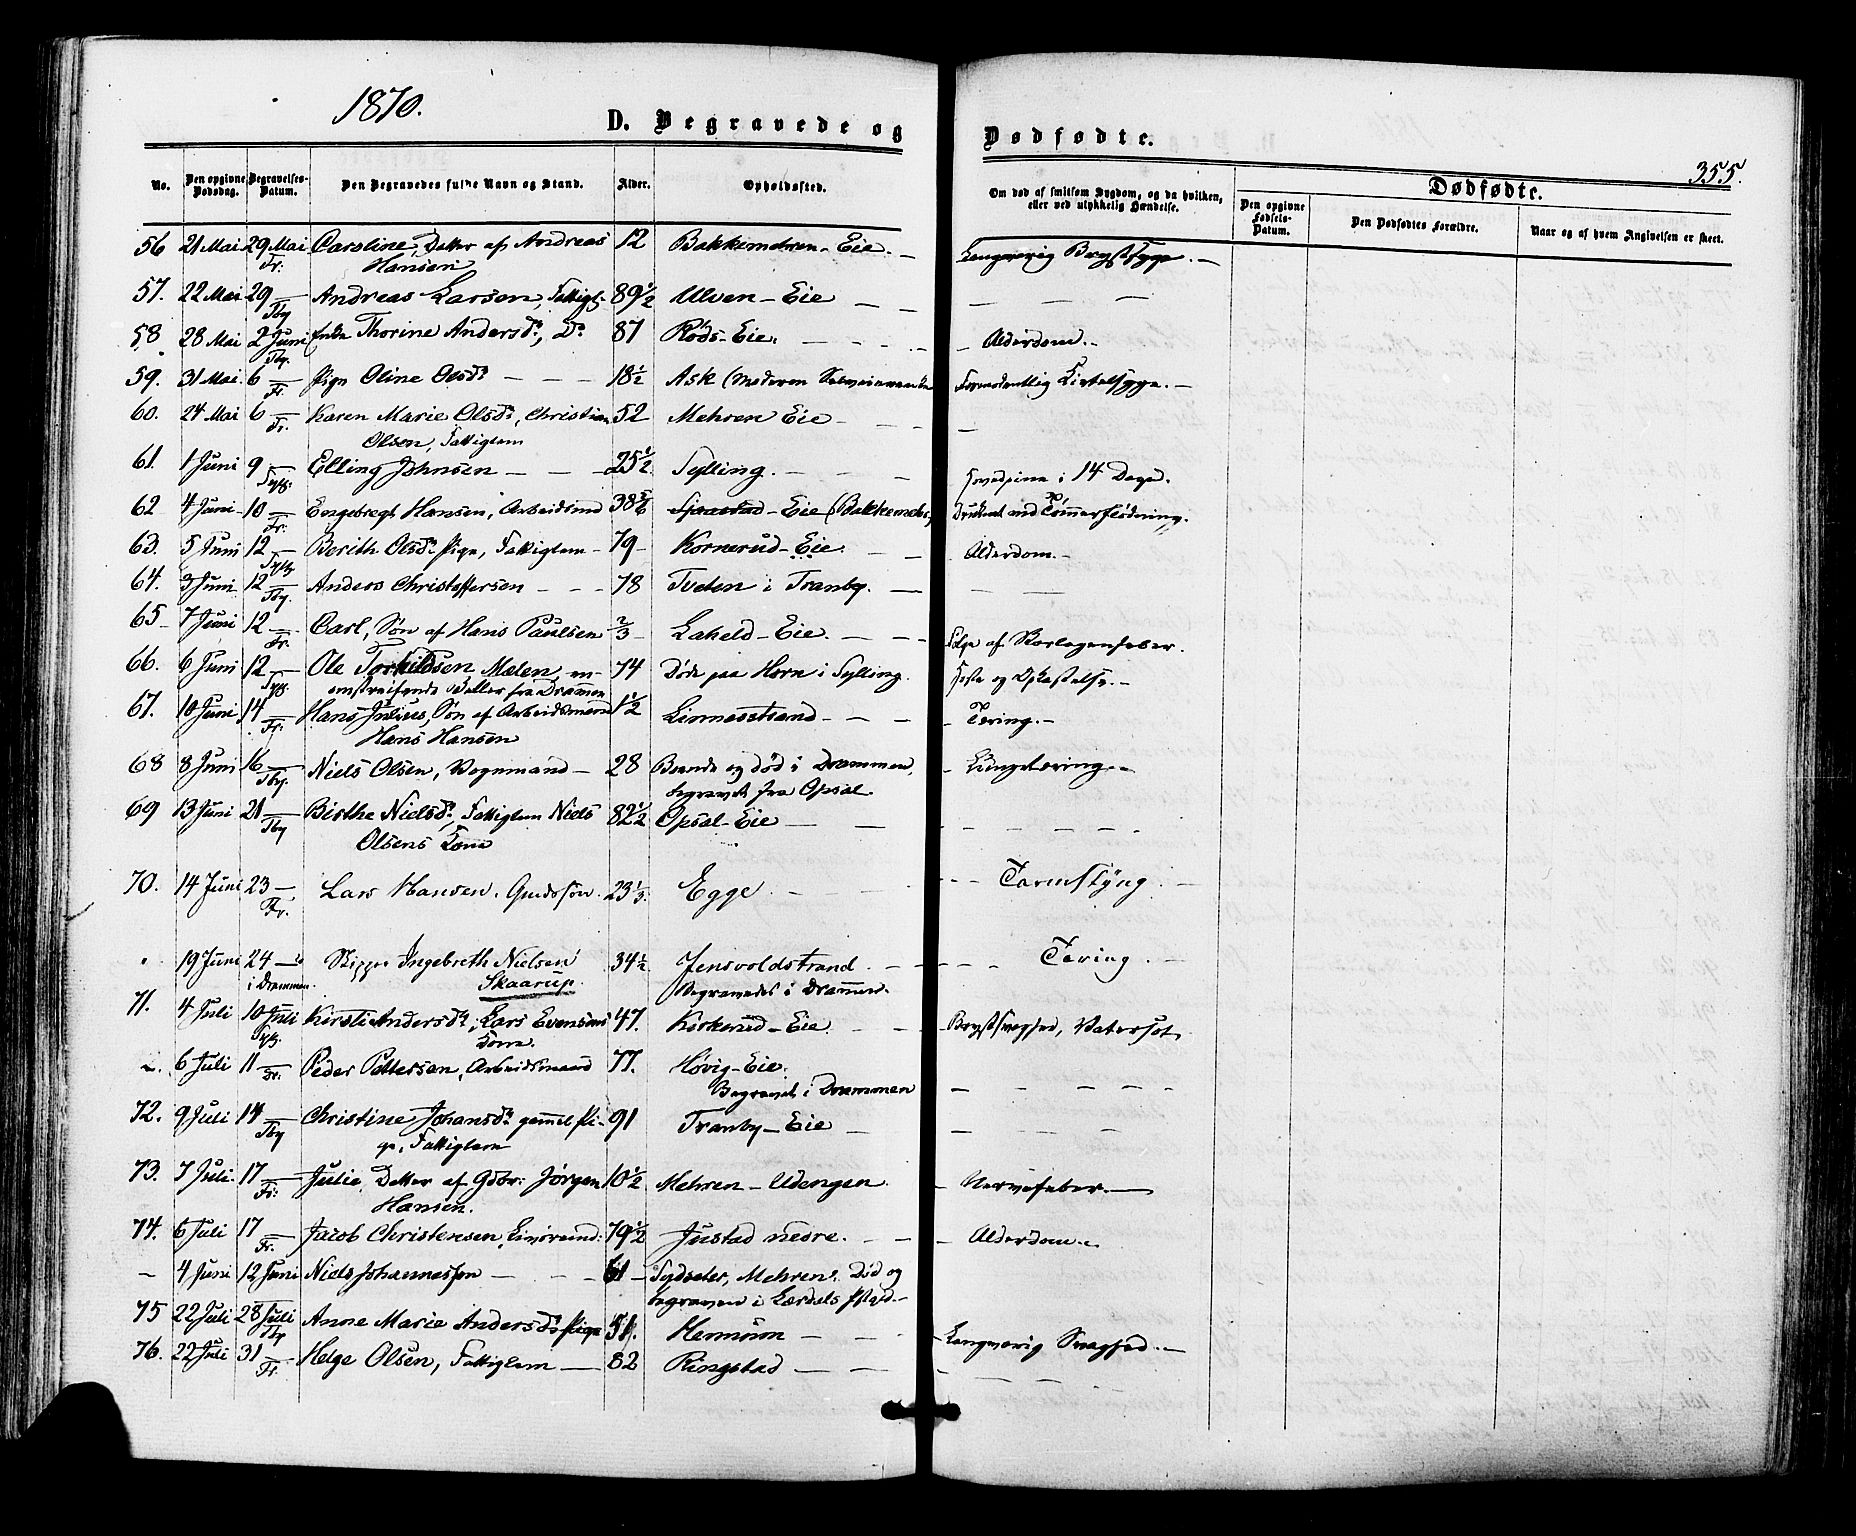 1870.
D. Begravede og Dødfødte.
355.
No.
Den opgivne Dødsdag.
Begravelses-Datum.
Den Begravedes fulde Navn og Stand.
Alder.
Opholdssted.
Om død af smitsom Sygdom, og da hvilken, eller ved ulykkelig Hændelse.
Dødfødte.
Den opgivne Fødsels-Datum.
Den Dødfødtes Forældre.
Naar og af hvem Angivelsen er skeet.
56 21 Mai 29 Mai Caroline, Datter af Andreas 12 Bakkemehren-Eie. Langvarig Brystsyge.
Fr. Hansen
57. 22 Mai 29 Andreas Larsen, Fattigl. 89 1/2 Ulven-Eie
Tby
58. 28 Mai 2 Juni Enke Thorine Andersd., Do 87 Røds-Eie. Alderdom.
Tby.
59. 31 Mai 6 Pige Oline Olsd. 18 1/2 Ask (Moderen Formodentlig Kirtelsyge.
Fr.
60. 24 Mai 6 Karen Marie Olsd., Christian 52 Mehren Eie
Fr. Olsen, Fattiglem
61. 1 Juni 9 Elling Johnsen 25 1/2 Sylling. Hovedpine i 14 Dage.
Syll.
62 4 Juni 10 Engebregt Hansen, Arbeidsmd 38 Sjaastad-Eie (Bakkemehr.) Druknet ved Tømmerflødning.
Fr.
63. 5 Juni 12 Berith Olsd. Pige, Fattiglem 79 Kornerud-Eie. Alderdom.
Syll.
64. 3 Juni 12 Anders Christoffersen 78 Tveten i Tranby.
Tby.
65 7 Juni 12 Carl, Søn af Hans Paulsen 2/3 Laheld-Eie. Følge af Skarlagensfeber.
Fr.
66. 6 Juni 12 Ole Torkildsen Mælen, en 74 Døde paa Horn i Sylling. Hoste og Opkastelse.
Syll. omstreifende Betler fra Drammen
67. 10 Juni 14 Hans Julius, Søn af Arbeidsmand 1 1/2 Linnesstrand Tæring.
Fr. Hans Hansen
68 8 Juni 16 Niels Olsen, Vognmand 28 Boende og død i Drammen, Lungetæring.
Tby. begravet fra Opsal.
69 13 Juni 21 Birthe Nielsd., Fattiglem Niels 82 1/2 Opsal-Eie
Tby Olsens Kone
70. 14 Juni 23 Lars Hansen. Grudssøn. 23 1/3 Egge Tarmslyng.
Fr.
19 Juni 24 Skipper Ingebreth Nielsen 34 1/2 Jensvoldstrand. Tæring.
i Drammen. Skaarup. Begravedes i Drammen.
71. 4 Juli 10 Juli Kirsti Andersd., Lars Evensens 47. Kirkerud-Eie. Brystsvaghed, Vatersot.
Syll. Kone.
6 Juli 11 Peder Pettersen, Arbeidsmand 77. Høvig-Eie.
Dr. Begravet i Drammen
72. 9 Juli 14 Christine Johansd. gammel Pi- 91 Tranby-Eie
Tby ge, Fattiglem
73. 7 Juli 17 Julie, Datter af Gdbr. Jørgen 10 1/2 Mehren-Udengen. Nervefeber.
Fr. Hansen.
74. 6 Juli 17 Jacob Christensen, 79 1/2 Justad nedre. Alderdom.
Fr.
4 Juni 12 Juni Niels Johannessen 61 Sydsæter, Mehren. Død og
begraven i Lærdals Pstgd.
75 22 Juli 28 Juli Anne Marie Andersd. Pige 51. Hennum Langvarig Svaghed.
Tby
76. 22 Juli 31 Helge Olsen, Fattiglem 82 Ringstad
Fr.